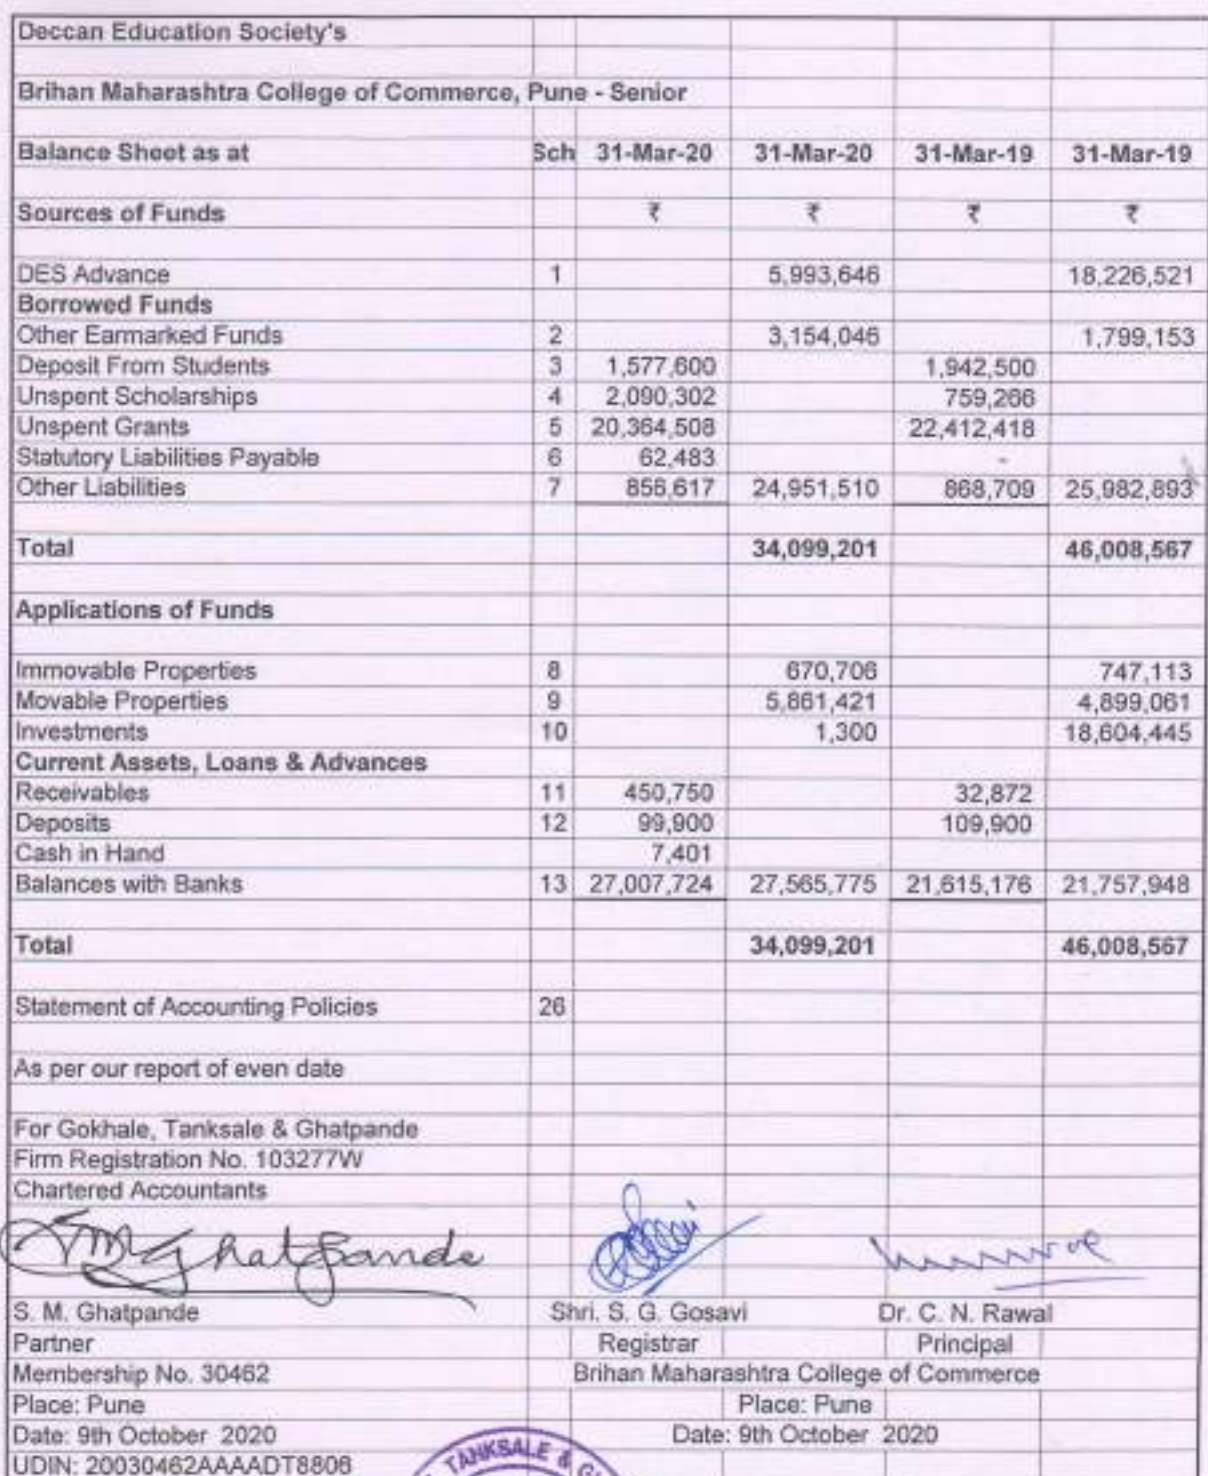 Deccan Education Society's
Brihan Maharashtra College of Commerce, Pune - Senior
Balance Sheet as at Sch 31-Mar-20 31-Mar-20 31-Mar-19 31-Mar-19
Sources of Funds ₹ ₹ ₹ ₹
DES Advance 1 5,993,646 18,226,521
Borrowed Funds
Other Earmarked Funds 2 3,154,046 1,799,153
Deposit From Students 3 1,577,600 1,942,500
Unspent Scholarships 4 2,090,302 759,266
Unspent Grants 5 20,364,508 22,412,418
Statutory Liabilities Payable 6 62,483 -
Other Liabilities 7 856,617 24,951,510 868,709 25,982,893
Total 34,099,201 46,008,567
Applications of Funds
Immovable Properties 8 670,706 747,113
Movable Properties 9 5,861,421 4,899,061
Investments 10 1,300 18,604,445
Current Assets, Loans & Advances
Receivables 11 450,750 32,872
Deposits 12 99,900 109,900
Cash in Hand 7,401
Balances with Banks 13 27,007,724 27,565,775 21,615,176 21,757,948
Total 34,099,201 46,008,567
Statement of Accounting Policies 26
As per our report of even date
For Gokhale, Tanksale & Ghatpande
Firm Registration No. 103277W
Chartered Accountants
SMGhatpande
S. M. Ghatpande Shri. S. G. Gosavi Dr. C. N. Rawal
Partner Registrar Principal
Membership No. 30462 Brihan Maharashtra College of Commerce
Place: Pune Place: Pune
Date: 9th October 2020 Date: 9th October 2020
UDIN: 20030462AAAADT8806
TANKSALE &